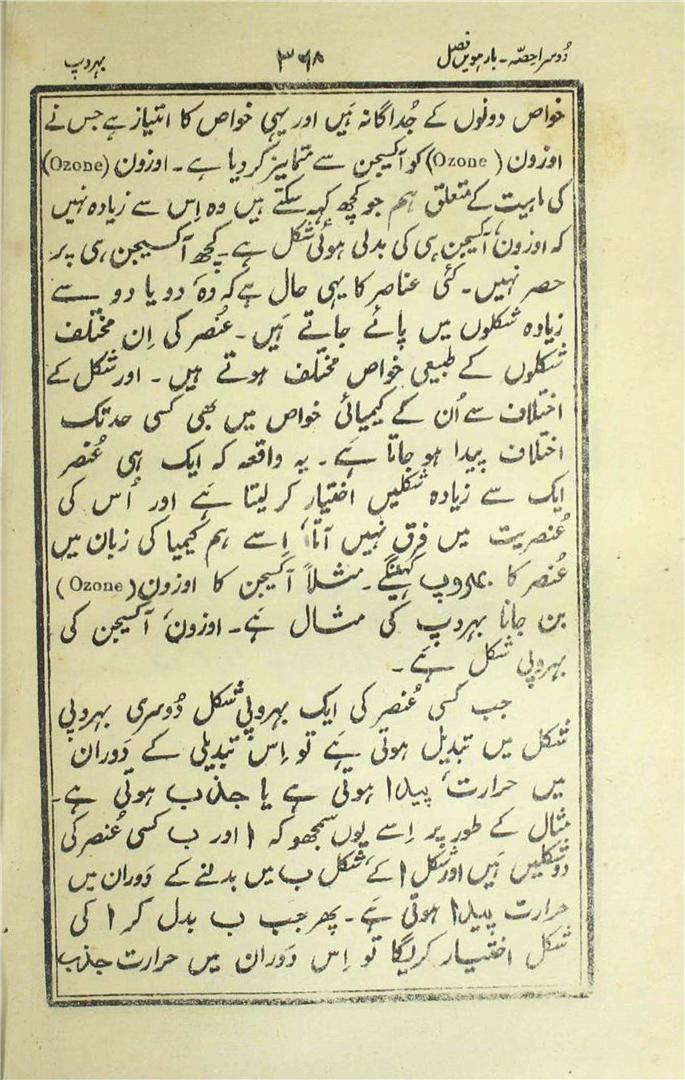 دُوسرا حصّہ۔ بارھویں فصل ۳۶۸ بہروپ
خواص دونوں کے جُداگانہ ہَیں اور یہی خواص کا امتیاز ہے جس نے
اوزون (Ozone) کو آکسیجن سے متمایز کر دیا ہے۔ اوزون (Ozone)
کی ماہیت کے متعلق ہم جو کچھ کہہ سکتے ہیں وہ اِس سے زیادہ نہیں
کہ اوزون، آکسیجن ہی کی بدلی ہوئی شکل ہے۔ کچھ آکسیجن ہی پر
حصر نہیں۔ کئی عناصر کا یہی حال ہے کہ وہ دو یا دو سے
زیادہ شکلوں میں پائے جاتے ہَیں۔ عُنصر کی اِن مختلف
شکلوں کے طبیعی خواص مختلف ہوتے ہیں۔ اور شکل کے
اختلاف سے اُن کے کیمیائی خواص میں بھی کسی حد تک
اختلاف پیدا ہو جاتا ہَے۔ یہ واقعہ کہ ایک ہی عُنصر
ایک سے زیادہ شکلیں اختیار کر لیتا ہَے اور اُس کی
عُنصریت میں فرق نہیں آتا، اِسے ہم کیمیا کی زبان میں
عُنصر کا بہروپ کہینگے۔ مثلاً آکسیجن کا اوزون (Ozone)
بن جانا بہروپ کی مثال ہَے۔ اوزون، آکسیجن کی
بہروپی شکل ہَے۔
جب کسی عُنصر کی ایک بہروپی شکل دُوسری بہروپی
شکل میں تبدیل ہوتی ہَے تو اِس تبدیلی کے دَوران
میں حرارت، پیدا ہوتی ہے یا جذب ہوتی ہے۔
مثال کے طور پر اِسے یوں سمجھو کہ ا اور ب کسی عُنصر کی
دو شکلیں ہَیں اور شکل ا کے، شکل ب میں بدلنے کے دَوران میں
حرارت پیدا ہوتی ہَے۔ پھر جب ب بدل کر ا کی
شکل اختیار کریگا تو اِس دَوران میں حرارت جذب